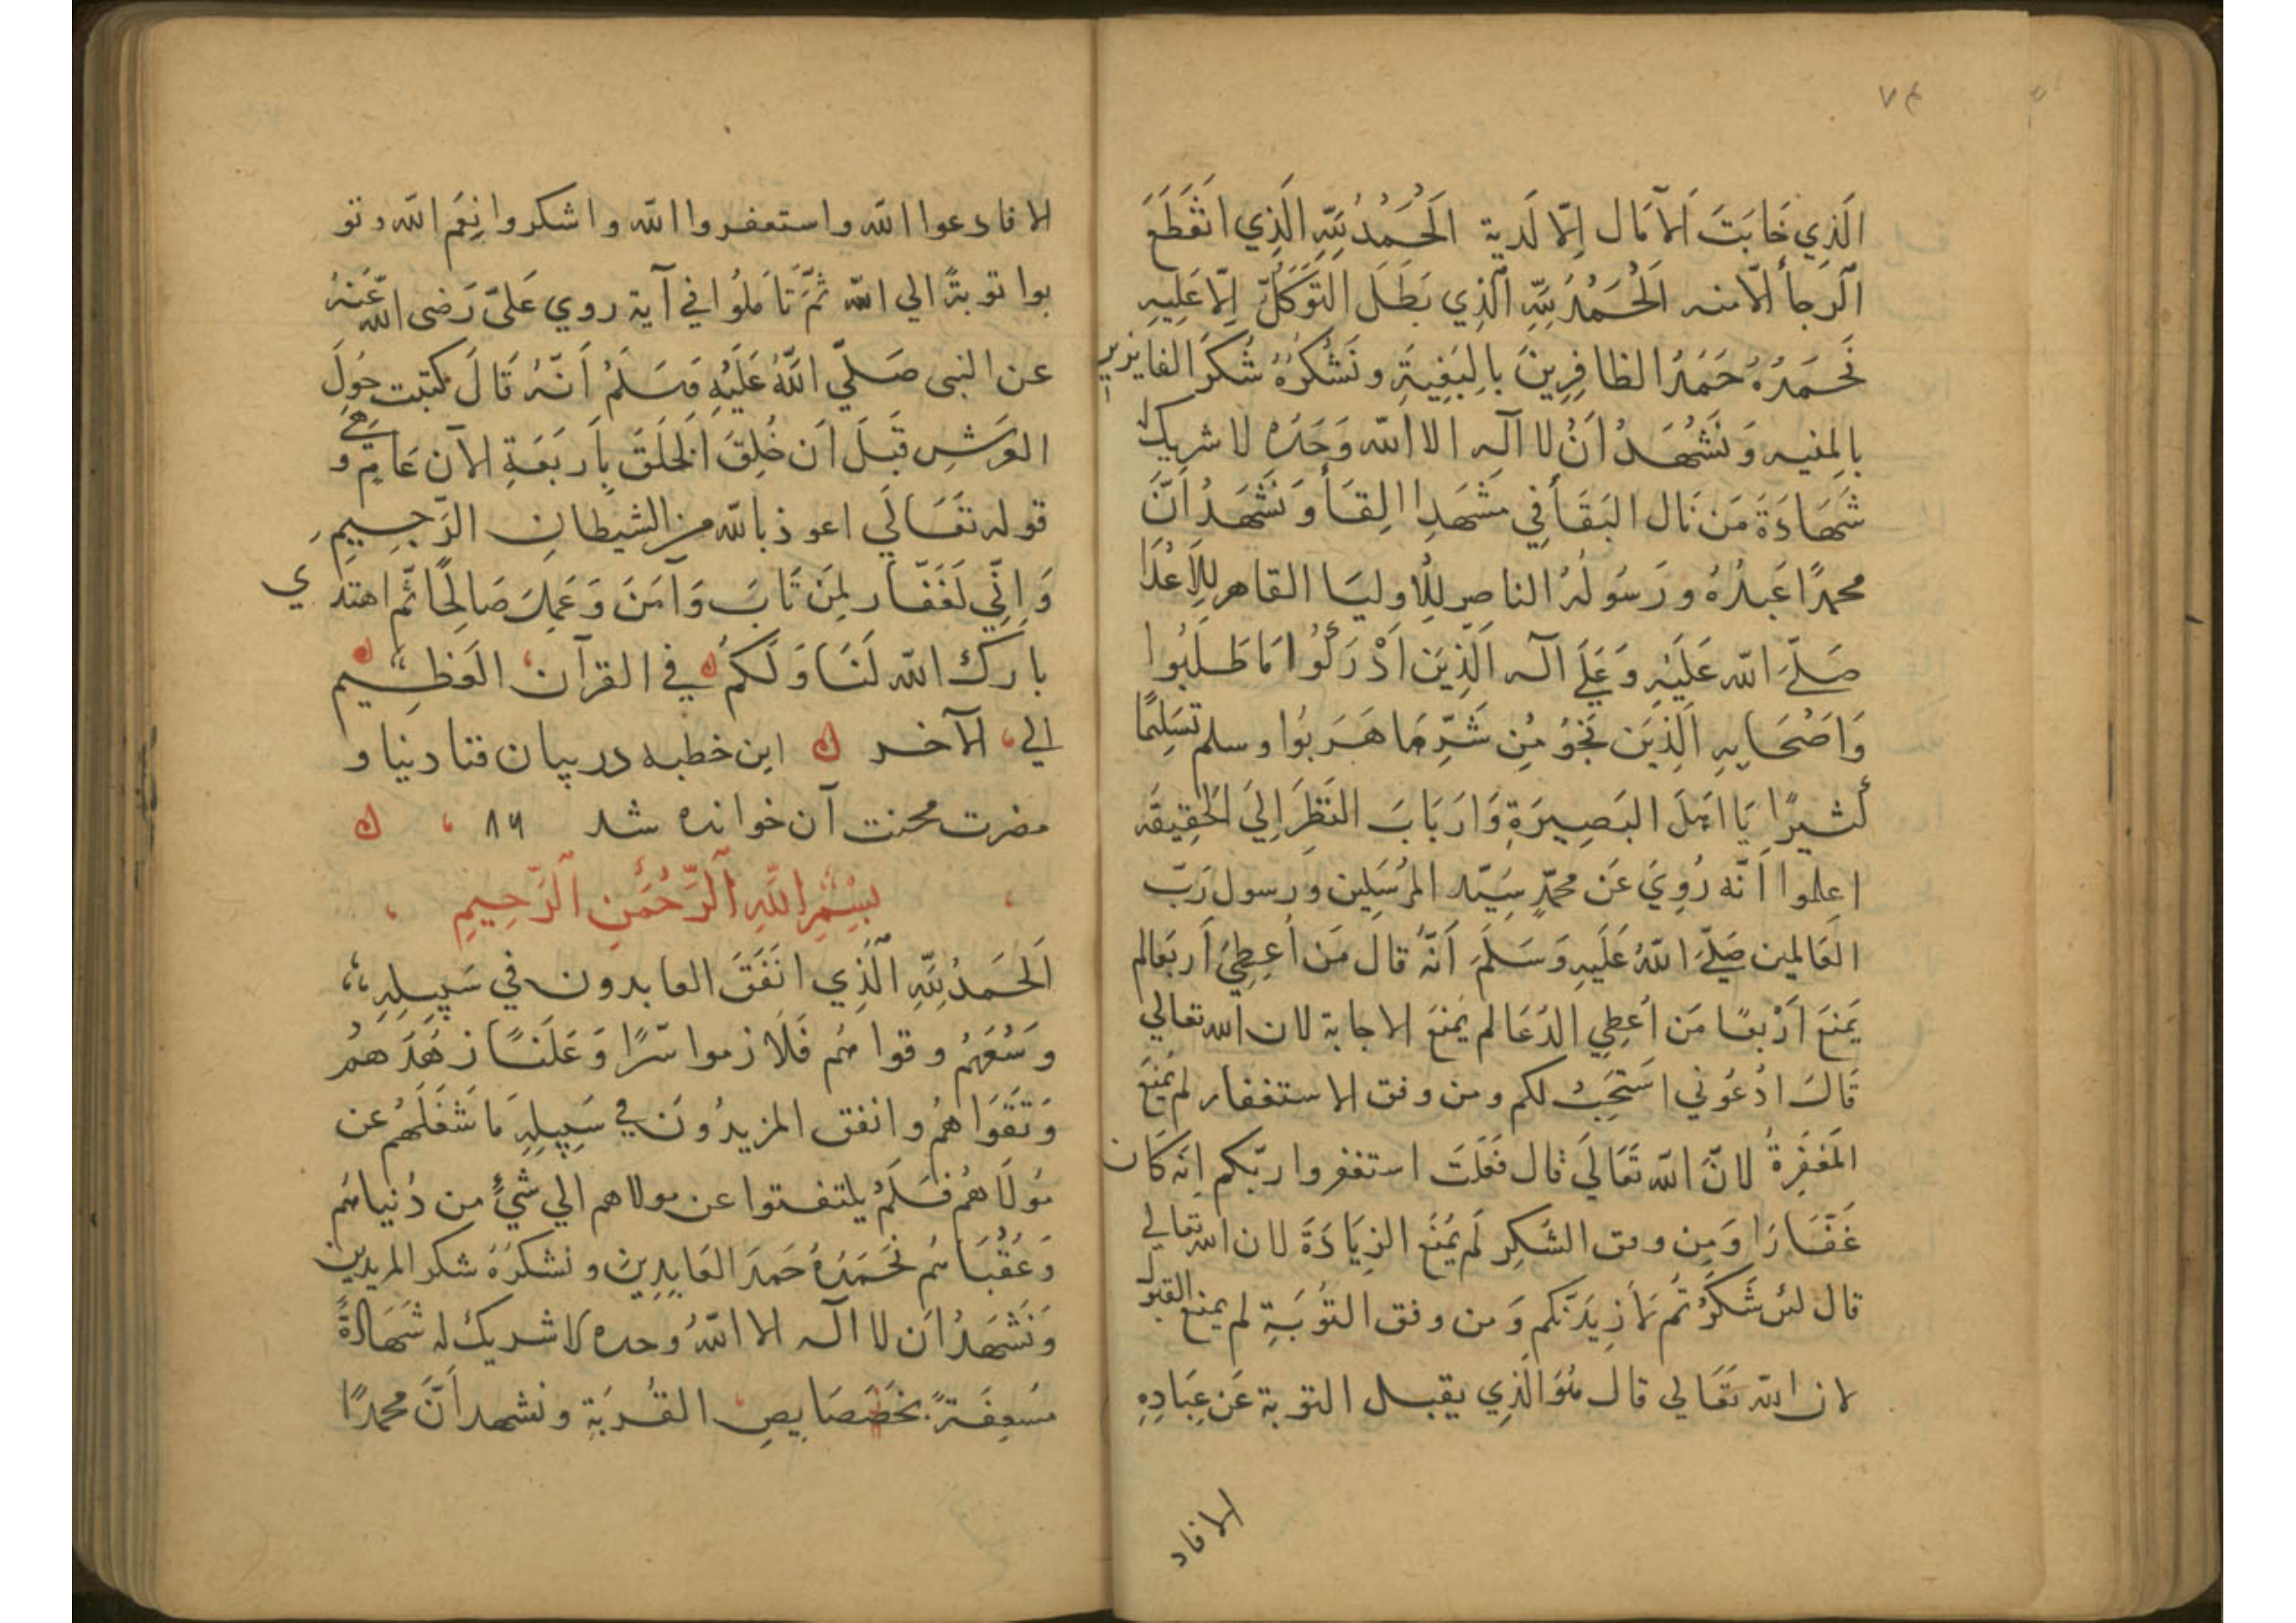 ٧٤
الَّذِي خَابَتَ اَلآمَال اِلّا لَدية اَلْحُمَدُ لِلّٰهِ الَّذِي انْقَطَعَ
اَلرَجاأ اِلّا منه اَلْحُمَدُ لِلّٰهِ اَلَّذِي بَطَلَ التَوَكّلُ اِلّا عَلِيهِ
نَحمَدُهُ حَمَدُ الظافِرِينَ بِالبَغِيةِ و نَشْكُرُهُ شُكرَ الفايزين
بالمنيه وَنَشْهَدُ اَنْ لا اله الا الله وَحَدَه لا شريك له
شَهَادَةَ مَن نَال البَقَأ فِي مَشْهَدِ القَأ وَنَشْهَدُ اَنَّ
محمدًا عَبدُهُ و رَسُولُهُ الناصِرِ لِلْاوليَا القاهر لِلاَعْدَا
صَلَّيَ الله عَلَيْهِ وَعَلَي آله الَّذِينَ اَدْرَكُوا مَا طَلَبُوا
وَاَصْحَابِهِ الَّذِيَن نَجَوُ مِن شَرِّ مَا هَرَبوُا وسلم تسَلِيمًا
كَثيرًا يَا اهَلَ البَصِيرَةِ وَارَبَابَ النَظَرَ اِلِيَ الحَقِيقَه
اعلموا اَنّه رُوِيَ عَن محمّدٍ سَيّد المرُسَلِين ورسول رَبّ
العَالمين صَلَّيَ اللهُ عَلَيهِ وَسَلَّمَ اَنَّهُ قَالَ مَن اُعطِيَ اَربعَا لم
يَمنَعَ اَرْبعًا مَن اُعطِي الدُعَا لم يُمنَعَ الاجابة لان الله تعالي
قَالَ ادُعُوني اسَتَجِبُ لكم ومن وفق الاستغفار لم يُمنَعَ
المَغفِرةُ لانّ الله تعَالَي قال فَقلَت استغفروا ربّكم انه كَان
غَفّارًا وَمِن وفق الشكِر لَم يُمنَعَ الزِيَادَةَ لان الله تعالي
قال لئن شَكَرُتُم لَازِيدَنّكم وَمن وفق التوُبَةِ لم يمنع القبول
لان الله تعَالي قال هُوَ الَّذِي يقبل التوبة عَن عِبَادِهِ
الا فاد
الا فادعوا الله واستغفروا الله واشكروا نِعَم الله و تو
بوا توبةً الي الله ثُمَّ تَاَملُوا في آية روي عَليّ رَضى الله عَنهُ
عن النبى صَلَّي اللهُ عَلَيْهِ وَسَلَمْ اَنّهُ قَالَ كتبت حَولَ
العَرَشِ قَبَلَ اَن خُلِقَ الخَلَقَ بِاَربَعَةِ الاف عَامٍ و هي
قوله تعَالَي اعوذ بالله من الشيطانِ الرّجيمِ
وَاِنّي لَغَفّار لِمَن تَابَ وَآمَنَ وَعَمِلَ صَالِحًا ثُم اهتدي
بارك الله لَنَا وَلَكُم في القرآن العَظِيم
الي الآخر اين خطبه در بيان فنا دنيا و
مضرت محنت آن خوانده شد ٨٦
بِسْمِ اللهِ الرَّحْمَنِ الرَّحِيمِ
اَلحَمَدُ لِلّٰهِ الَّذِي انَفَقَ العابدون في سَبِيلِهِ
وسُعَهُم وقواهُم فَلَازموا سرًا وَعَلَنًا زهُدَهُمُ
وَتَقوَاهُم وانفق المزيدُونَ في سَبِيلِهِ مَا شَغَلَهُم عن
مَولَاهُم فَلَمُ يلتفتوا عن مولاهم الي شَيٍ من دُنياهُم
وَعُقبَاهُم نحَمَدُهُ حَمدَ العَابِدِينَ ونشكرُهُ شكر المريدين
وَنَشَهدُ اَن لا اله الا اللهُ وحده لا شريك له شَهَادةً
مسُعِفَةً بخصَصَايصِ القُربَةِ ونشهد اَنَّ محمدًا